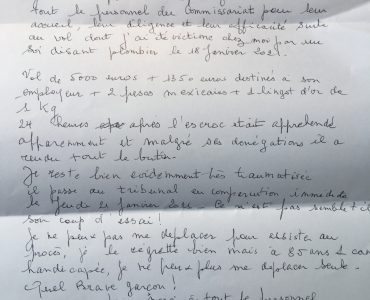 tout le personnel du commissariat pour leur
accueil, leur diligence et leur efficacité suite
au vol dont j'ai été victime chez moi par une
soi disant plombier le 18 janvier 2021.
Vol de 5000 euros + 1350 euros destinés a son
employeur + 2 pesos mexicaines + 1 lingot d'or de
1 Kg
24 heures après l'escroc était appréhendé
apparemment et malgré ses dénégations il a
rendu tout le butin.
Je reste bien évidemment très traumatisée
il passe au tribunal en comparution immédiate
le jeudi 21 janvier Ce n'est pas semble t il
son coup d'essai !
Je ne peux pas me déplacer pour assister au
procès, je le regrette bien mais a 85 ans
handicapée, je ne peux plus me déplacer seule.
Quel Brave garçon !
à tout le personnel